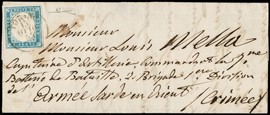 Monsieur
Monsieur Louis Mella
Capitaine d'Artillerie, Commandant la
Batterie de Bataille, 2 Brigade 1ere Division
Armée Sarde en Orient (Crimée)